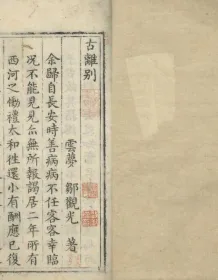 古離别
雲夢 鄒觀光 著
余歸自長安時善病病不任客客幸臨
况不能見見亦無所報謁居二年所有
西河之慟禮太和徃還小有酬應已復